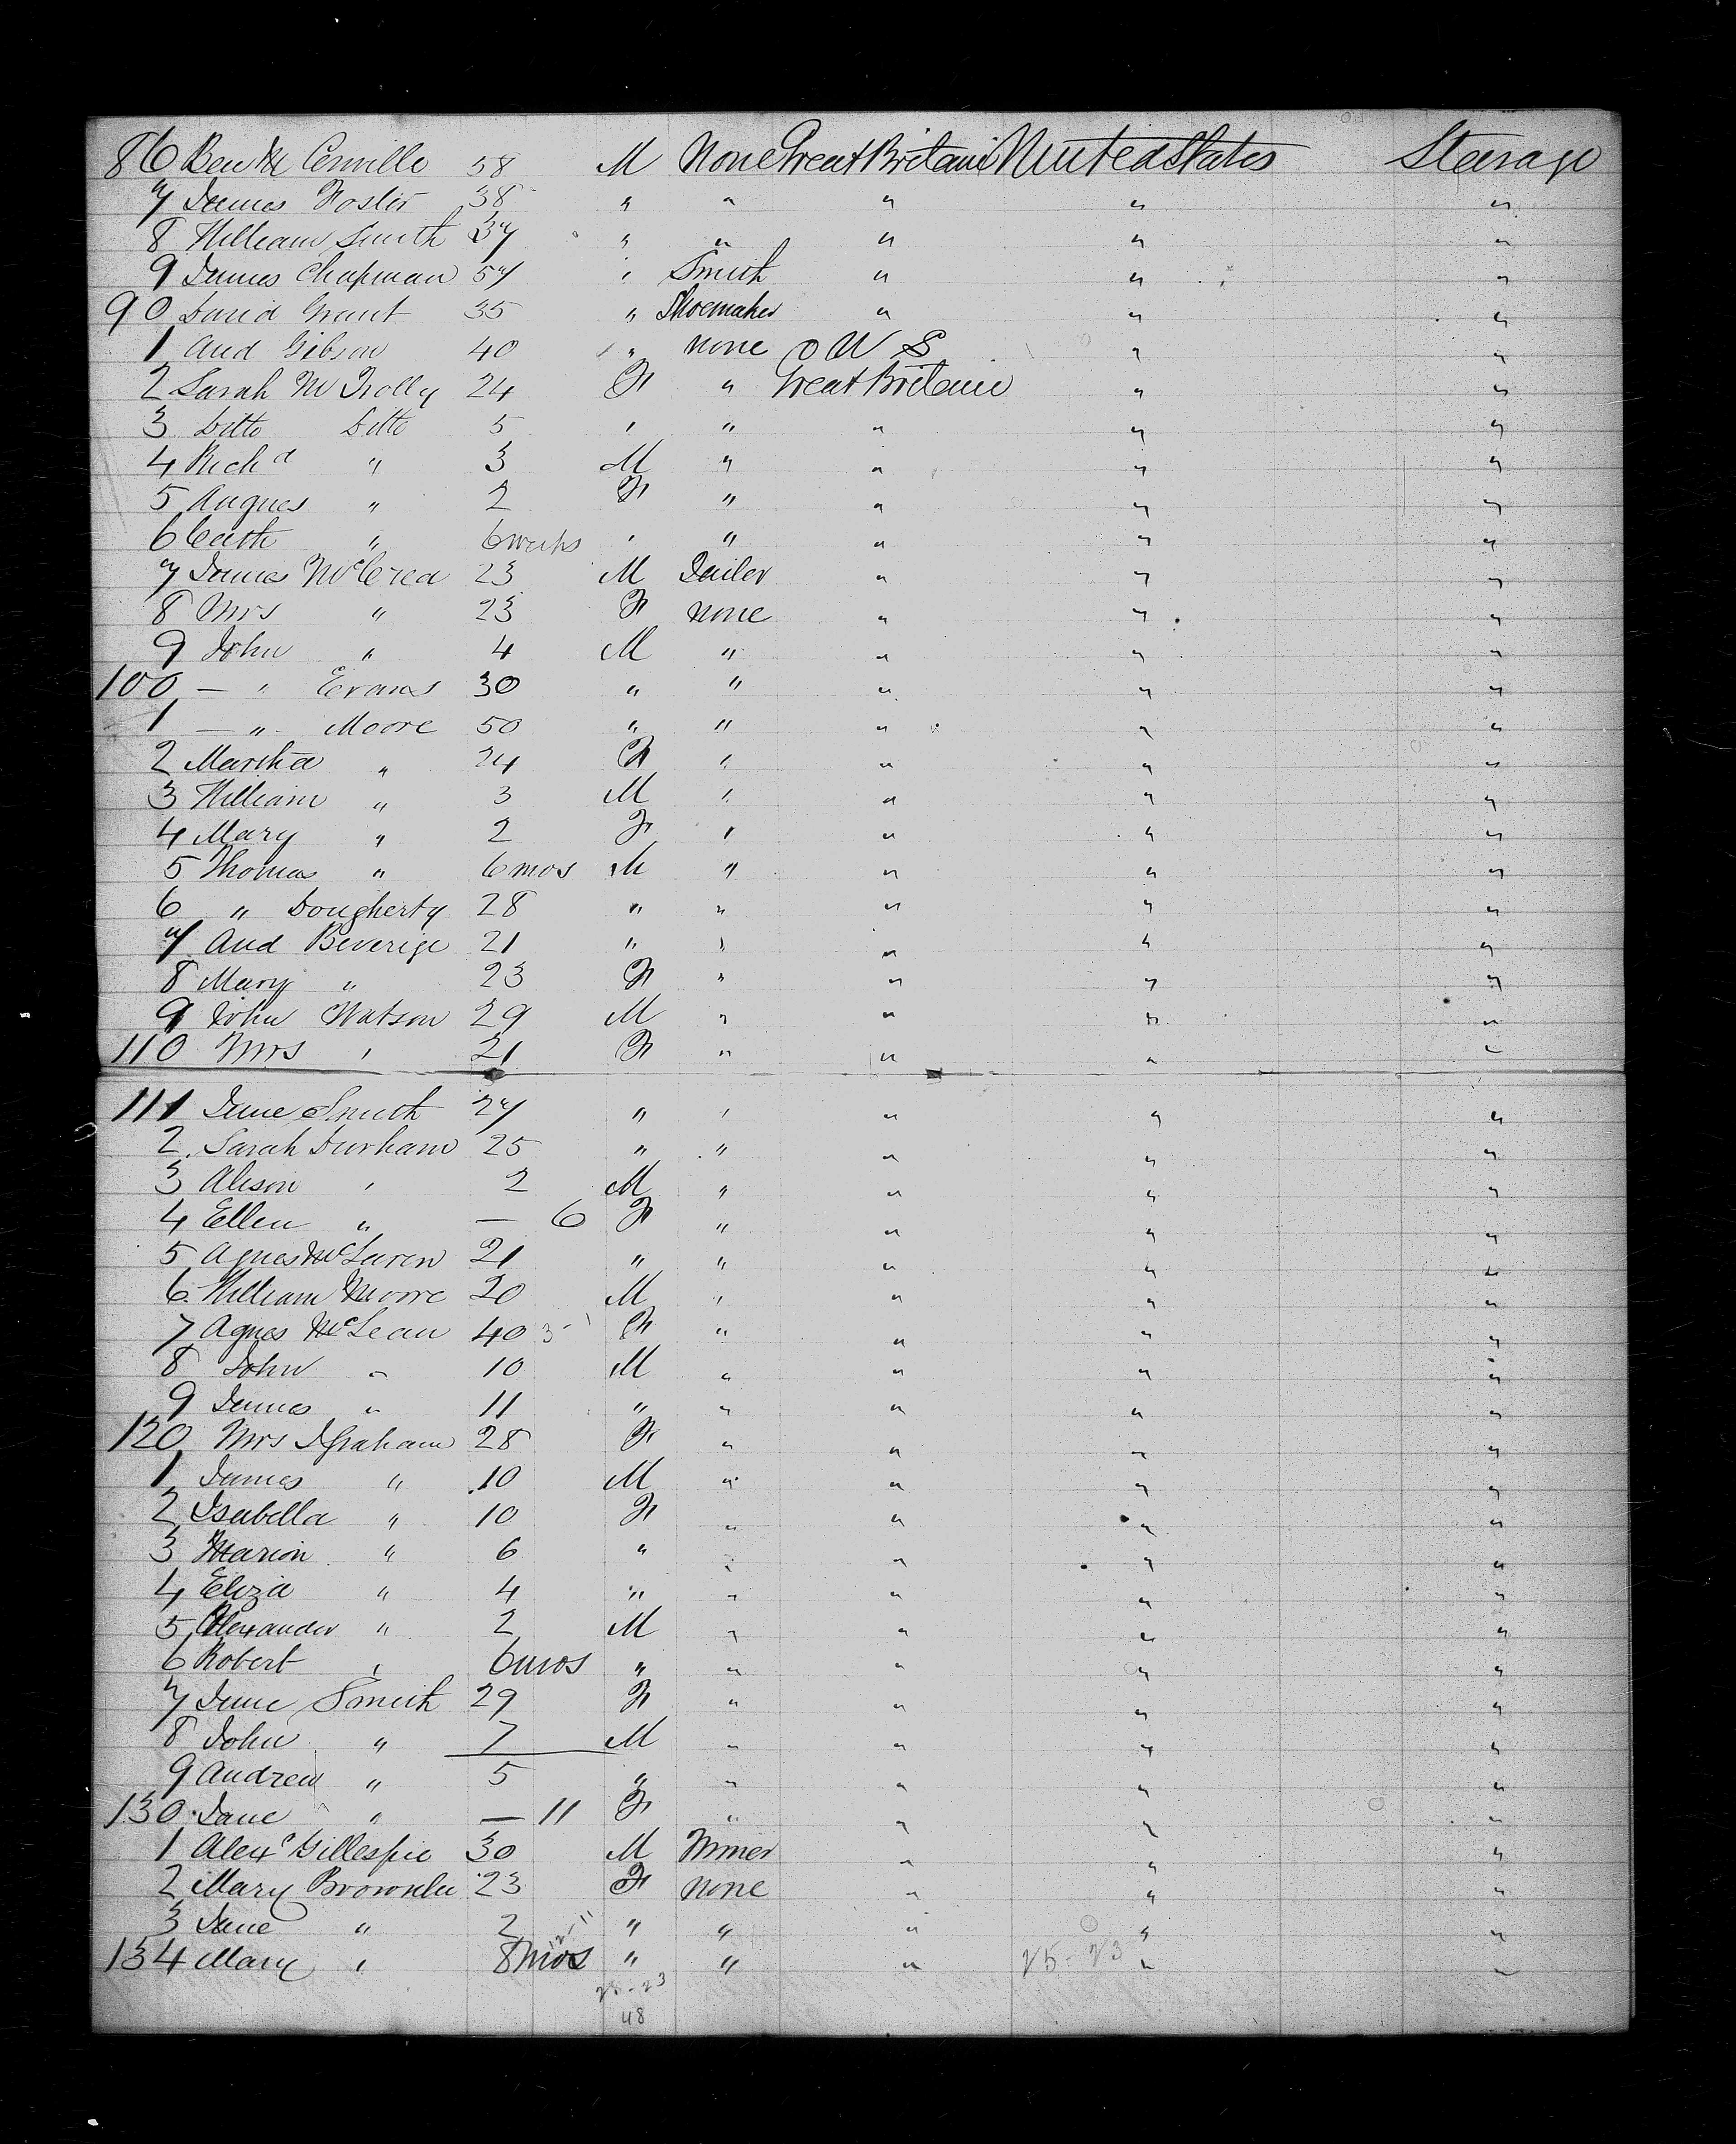 86 58 M None Great Britain United States Steerage
7 James Foster 38 " " " " "
8 William Smith 37 " " " " "
9 James Chapman 57 " Smith " " "
90 David Grant 35 " Shoemaker " " "
1 And Gibson 40 " none U S " "
2 Sarah 24 F " Great Britain " "
3 Ditto Ditto 5 " " " " "
4 Richd " 3 M " " " "
5 Augnes " 2 F " " " "
6 Cath " 6 weeks " " " " "
7 James McCrea 23 M Tailor " " "
8 Mrs " 23 F none " " "
9 John " 4 M " " " "
100 — " Evans 30 " " " " "
1 — " Moore 50 " " " " "
2 Martha " 24 F " " " "
3 William " 3 M " " " "
4 Mary " 2 F " " " "
5 Thomas " 6 mos M " " " "
6 " Dougherty 28 " " " " "
7 And Beverige 21 " " " " "
8 Mary " 23 F " " " "
9 John Watson 29 M " " " "
110 Mrs " 21 F " " " "
111 Jane Smith 27 " " " " "
2 Sarah Durham 25 " " " " "
3 Alison " 2 M " " " "
4 Ellen " — 6 F " " " "
5 Agnes McLaren 21 " " " " "
6 William Moore 20 M " " " "
7 Agnes McLean 40 F " " " "
8 John " 10 M " " " "
9 James " 11 " " " " "
120 Mrs J Graham 28 F " " " "
1 James " 10 M " " " "
2 Isabella " 10 F " " " "
3 Marion " 6 " " " " "
4 Eliza " 4 " " " " "
5 Alexander " 2 M " " " "
6 Robert " 6 mos " " " " "
7 Jane Smith 29 F " " " "
8 John " 7 M " " " "
9 Andrew " 5 " " " " "
130 Jane " — 11 F " " " "
1 Alexr Gillespie 30 M Miner " " "
2 Mary Brownlee 23 F none " " "
3 Jane " 2 " " " " "
134 Mary " 8 mos " " " 25-23 " "
25-23
48